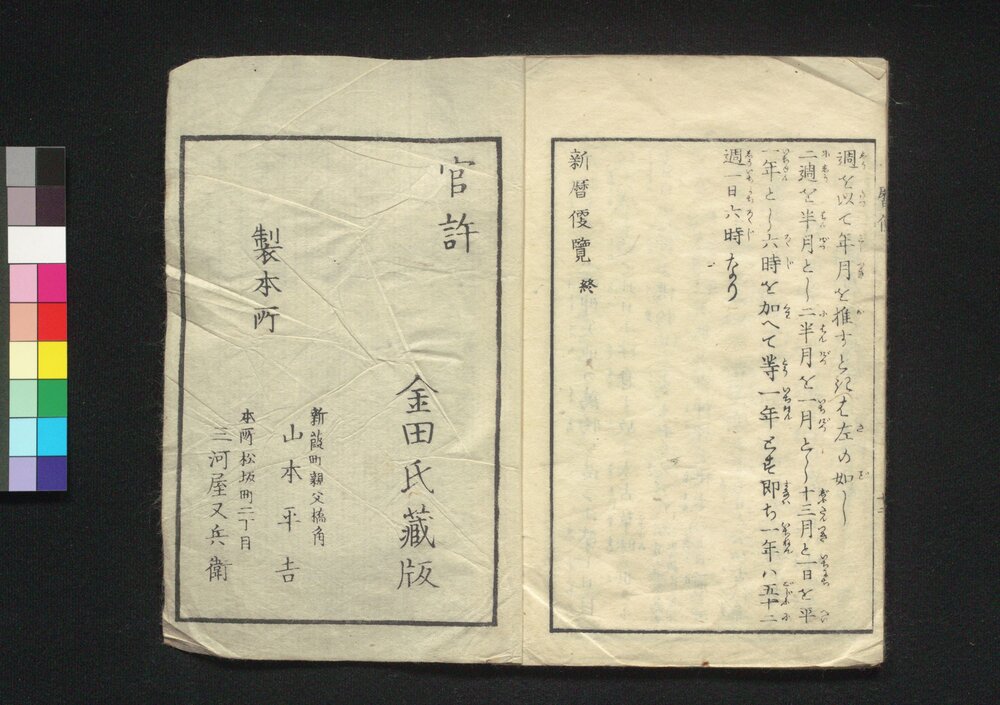 週を以て年月を推すときは左の如し
二週を半月とし二半月を一月とし十三月と一日を平
一年とし六時を加へて等一年とす即ち一年ハ五十二
週一日六時なり
新暦便覧 終
官許
金田氏藏版
製本所
新葭町親父橋角
山本平吉
本所松坂町二丁目
三河屋又兵衛